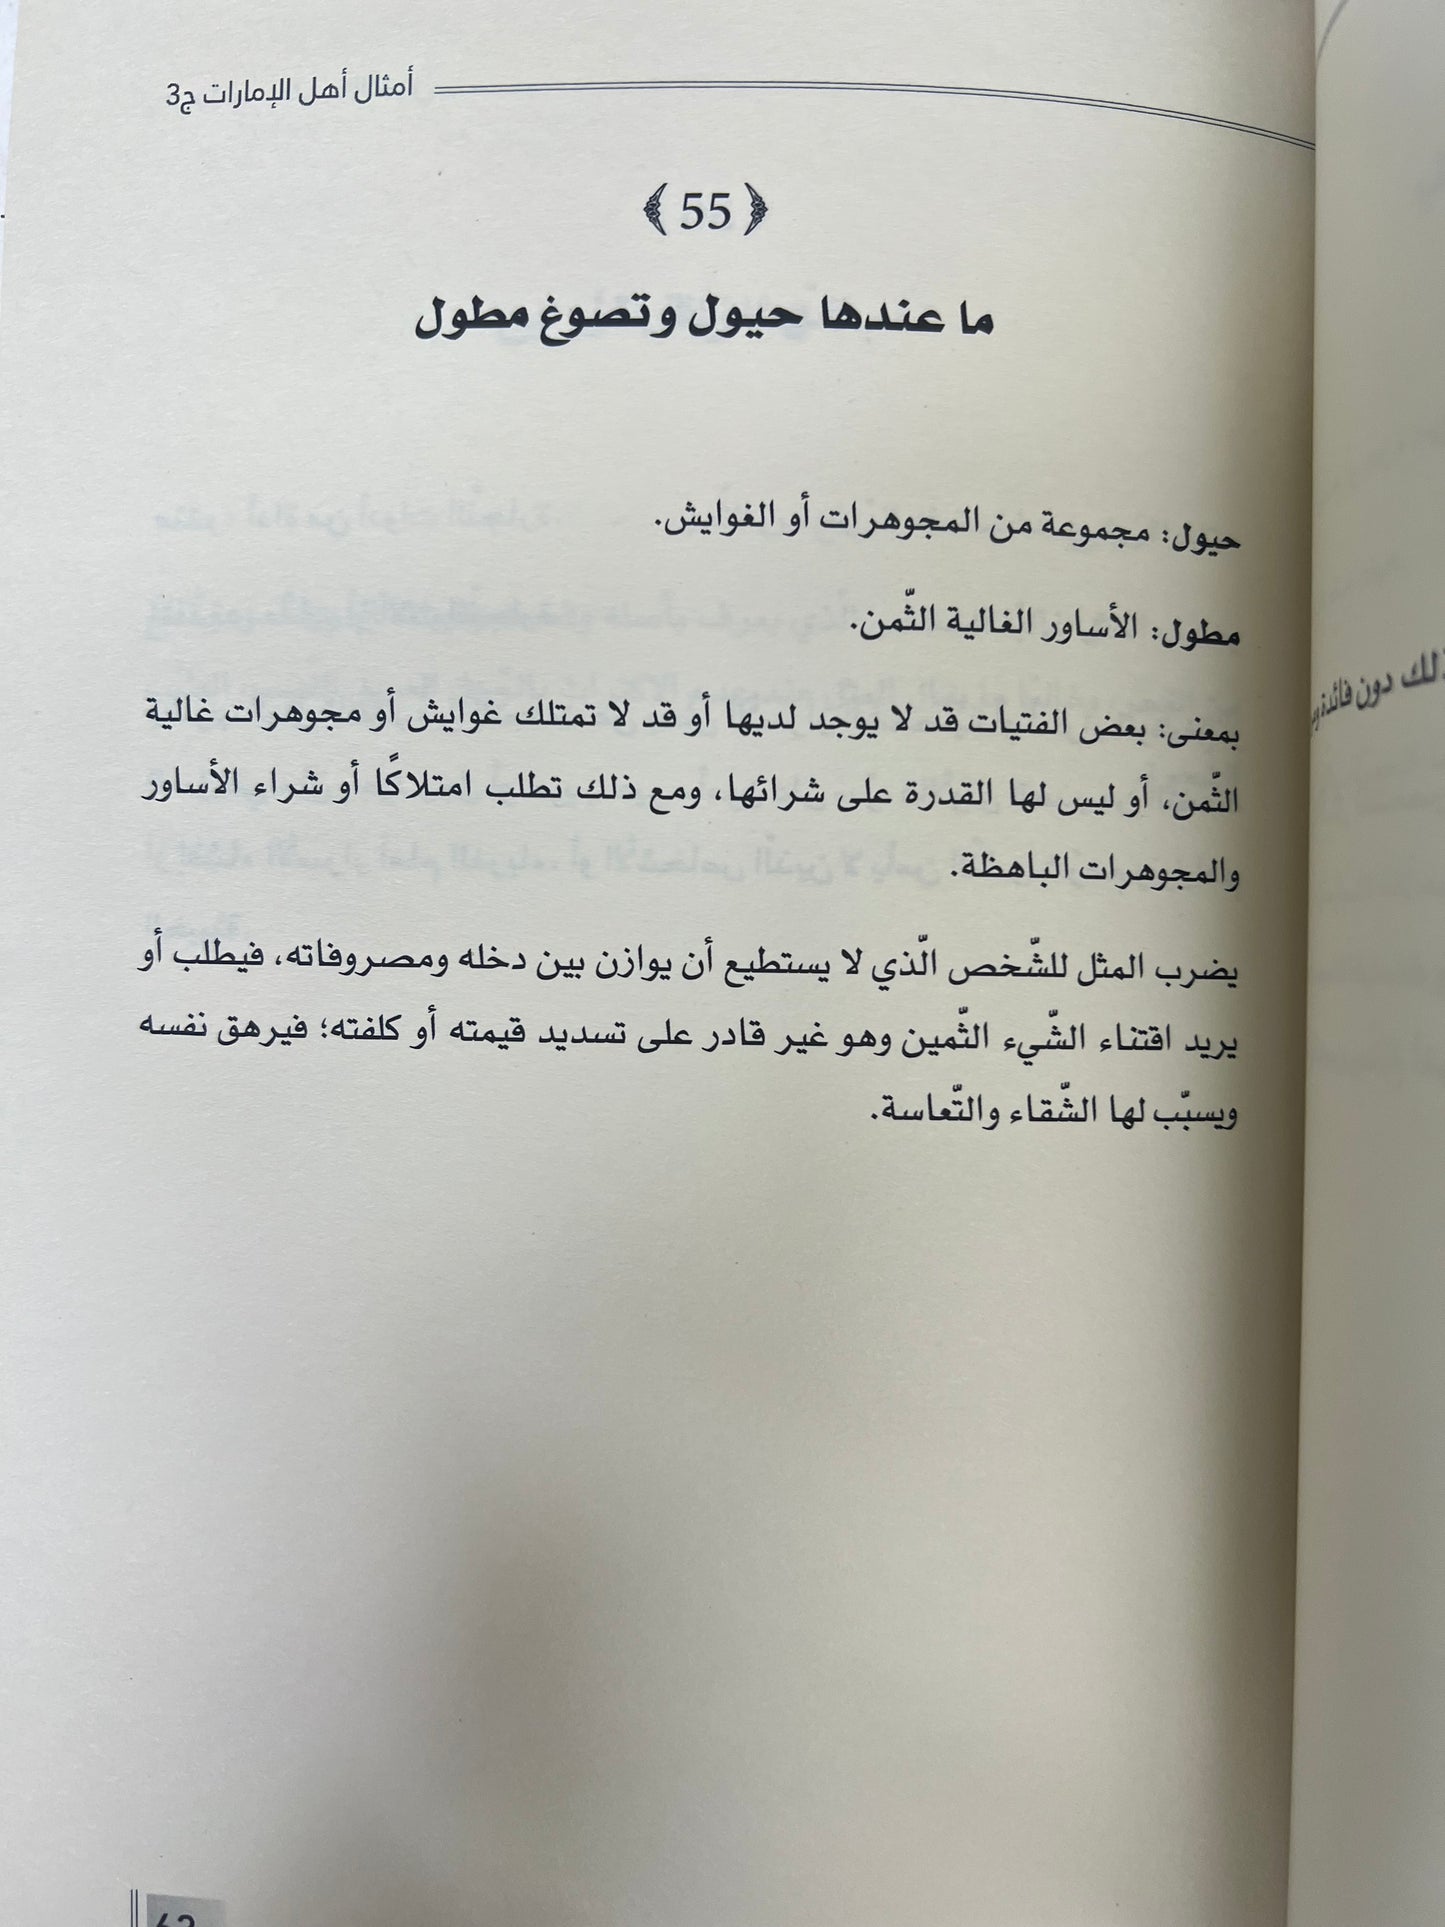 أمثال أهل الإمارات ج3
﴿ 55 ﴾
ما عندها حيول وتصوغ مطول
حيول: مجموعة من المجوهرات أو الغوايش.
مطول: الأساور الغالية الثّمن.
بمعنى: بعض الفتيات قد لا يوجد لديها أو قد لا تمتلك غوايش أو مجوهرات غالية
الثّمن، أو ليس لها القدرة على شرائها، ومع ذلك تطلب امتلاكًا أو شراء الأساور
والمجوهرات الباهظة.
يضرب المثل للشّخص الّذي لا يستطيع أن يوازن بين دخله ومصروفاته، فيطلب أو
يريد اقتناء الشّيء الثّمين وهو غير قادر على تسديد قيمته أو كلفته؛ فيرهق نفسه
ويسبّب لها الشّقاء والتّعاسة.
دون فائدة